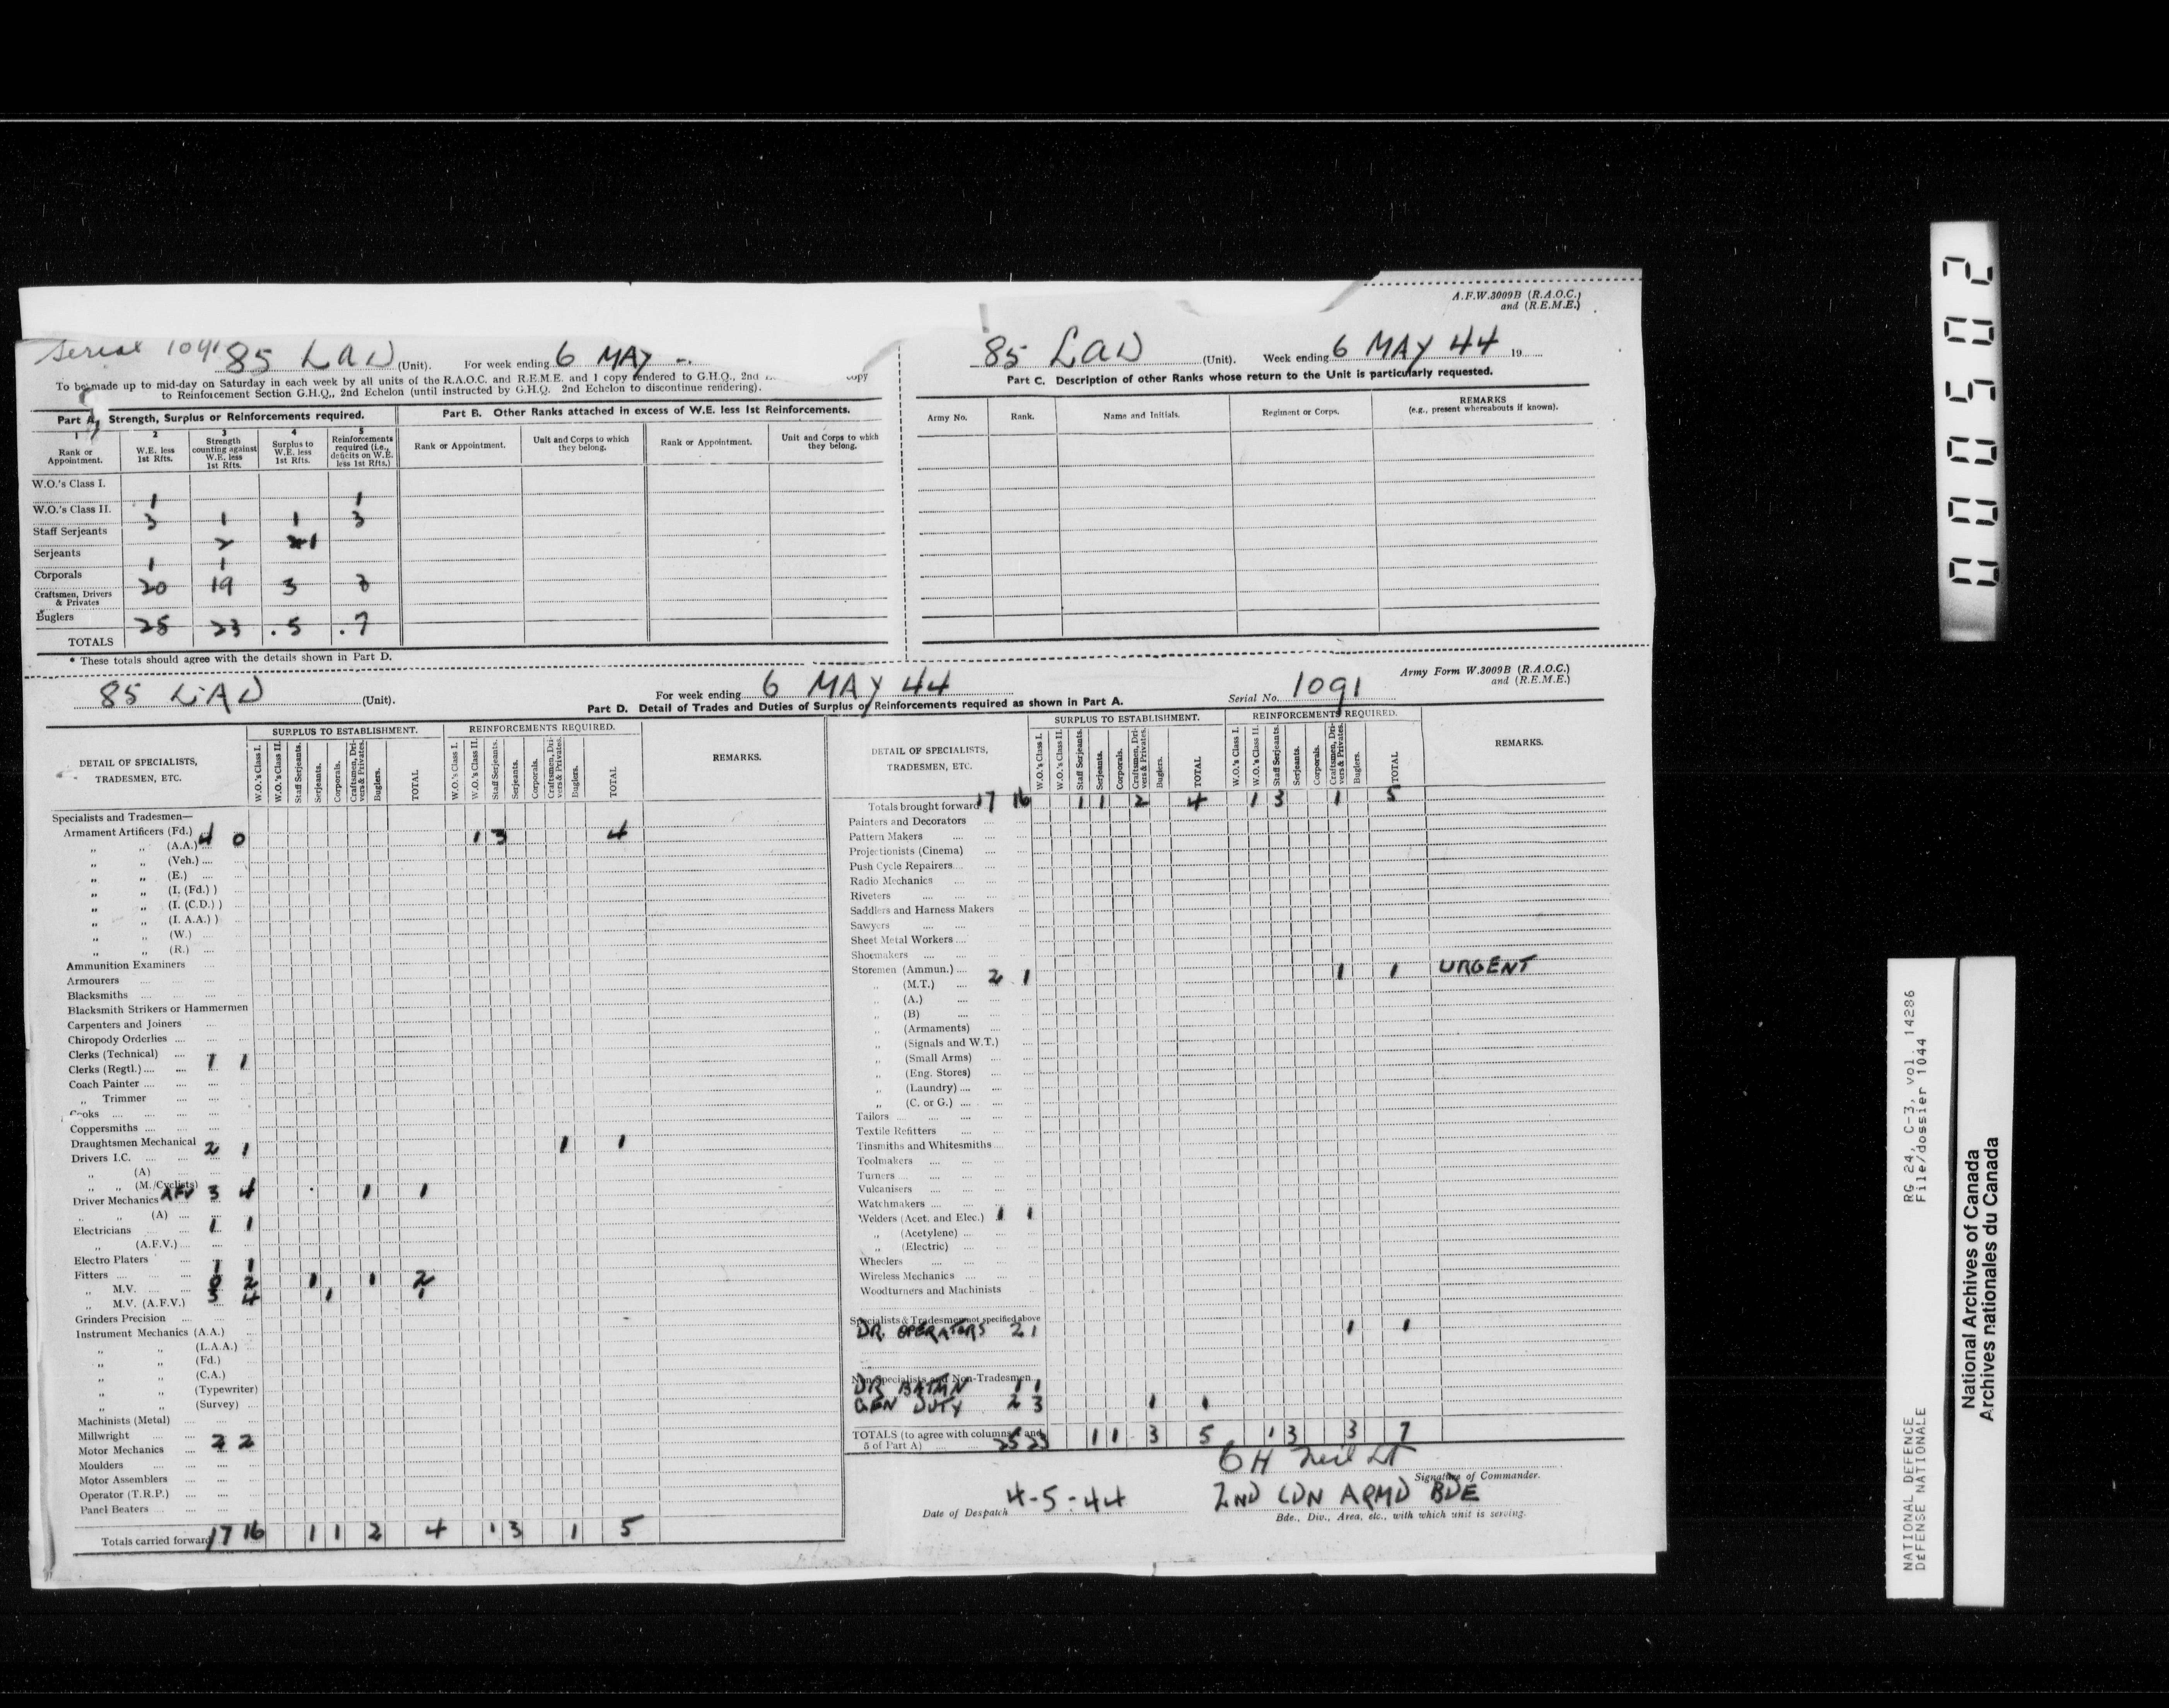 A.F.W.3009B (R.A.O.C.)
and (R.E.M.E.)
Serial 1091 85 LAD (Unit). For week ending 6 MAY
To be made up to mid-day on Saturday in each week by all units of the R.A.O.C. and R.E.M.E. and 1 copy rendered to G.H.Q., 2nd copy
to Reinforcement Section G.H.Q., 2nd Echelon (until instructed by G.H.Q. 2nd Echelon to discontinue rendering).
Part A. Strength, Surplus or Reinforcements required.
1 2 3 4 5
Rank or Appointment. W.E. less 1st Rfts. Strength counting against W.E. less 1st Rfts. Surplus to W.E. less 1st Rfts. Reinforcements required (i.e., deficits on W.E. less 1st Rfts.)
W.O.'s Class I.
W.O.'s Class II. 1 1
Staff Serjeants 3 1 1 3
Serjeants 2 1
Corporals 1 1
Craftsmen, Drivers & Privates 20 19 3 3
Buglers
TOTALS 25 23 5 7
* These totals should agree with the details shown in Part D.
Part B. Other Ranks attached in excess of W.E. less 1st Reinforcements.
Rank or Appointment. Unit and Corps to which they belong. Rank or Appointment. Unit and Corps to which they belong.
85 LAD (Unit). Week ending 6 MAY 44 19
Part C. Description of other Ranks whose return to the Unit is particularly requested.
Army No. Rank. Name and Initials. Regiment or Corps. REMARKS
(e.g., present whereabouts if known).
Army Form W.3009B (R.A.O.C.)
and (R.E.M.E.)
85 LAD (Unit). For week ending 6 MAY 44 Serial No. 1091
Part D. Detail of Trades and Duties of Surplus or Reinforcements required as shown in Part A.
DETAIL OF SPECIALISTS, TRADESMEN, ETC. SURPLUS TO ESTABLISHMENT. REINFORCEMENTS REQUIRED. REMARKS.
W.O.'s Class I. W.O.'s Class II. Staff Serjeants. Serjeants. Corporals. Craftsmen, Drivers & Privates. Buglers. TOTAL
W.O.'s Class I. W.O.'s Class II. Staff Serjeants. Serjeants. Corporals. Craftsmen, Drivers & Privates. Buglers. TOTAL
Specialists and Tradesmen—
Armament Artificers (Fd.) 4 0 1 3 4
„ „ (A.A.)
„ „ (Veh.)
„ „ (E.)
„ „ (I. (Fd.) )
„ „ (I. (C.D.) )
„ „ (I. A.A.) )
„ „ (W.)
„ „ (R.)
Ammunition Examiners
Armourers
Blacksmiths
Blacksmith Strikers or Hammermen
Carpenters and Joiners
Chiropody Orderlies
Clerks (Technical) 1 1
Clerks (Regtl.)
Coach Painter
„ Trimmer
Cooks
Coppersmiths
Draughtsmen Mechanical
Drivers I.C. 2 1 1 1
„ (A)
„ „ (M./Cyclists)
Driver Mechanics AFV 3 4 1 1
„ „ (A)
Electricians 1 1
„ (A.F.V.)
Electro Platers
Fitters 1 1
„ M.V. 0 2 1 1 2
„ M.V. (A.F.V.) 3 4 1 1
Grinders Precision
Instrument Mechanics (A.A.)
„ „ (L.A.A.)
„ „ (Fd.)
„ „ (C.A.)
„ „ (Typewriter)
„ „ (Survey)
Machinists (Metal)
Millwright
Motor Mechanics 2 2
Moulders
Motor Assemblers
Operator (T.R.P.)
Panel Beaters
Totals carried forward 17 16 1 1 2 4 1 3 1 5
DETAIL OF SPECIALISTS, TRADESMEN, ETC. SURPLUS TO ESTABLISHMENT. REINFORCEMENTS REQUIRED. REMARKS.
W.O.'s Class I. W.O.'s Class II. Staff Serjeants. Serjeants. Corporals. Craftsmen, Drivers & Privates. Buglers. TOTAL
W.O.'s Class I. W.O.'s Class II. Staff Serjeants. Serjeants. Corporals. Craftsmen, Drivers & Privates. Buglers. TOTAL
Totals brought forward 17 16 1 1 2 4 1 3 1 5
Painters and Decorators
Pattern Makers
Projectionists (Cinema)
Push Cycle Repairers
Radio Mechanics
Riveters
Saddlers and Harness Makers
Sawyers
Sheet Metal Workers
Shoemakers
Storemen (Ammun.)
„ (M.T.) 2 1 1 1 URGENT
„ (A.)
„ (B)
„ (Armaments)
„ (Signals and W.T.)
„ (Small Arms)
„ (Eng. Stores)
„ (Laundry)
„ (C. or G.)
Tailors
Textile Refitters
Tinsmiths and Whitesmiths
Toolmakers
Turners
Vulcanisers
Watchmakers
Welders (Acet. and Elec.) 1 1
„ (Acetylene)
„ (Electric)
Wheelers
Wireless Mechanics
Woodturners and Machinists
Specialists & Tradesmen not specified above
DR. OPERATORS 2 1 1 1
Non-Specialists and Non-Tradesmen
DR BATMN 1 1
GEN DUTY 2 3 1 1
TOTALS (to agree with columns 4 and 5 of Part A) 25 23 1 1 3 5 1 3 3 7
GH Neil Lt
Signature of Commander.
Date of Despatch 4-5-44 2ND CDN ARMD BDE
Bde., Div., Area, etc., with which unit is serving.
000502
NATIONAL DEFENCE RG 24, C-3, vol. 14286
DÉFENSE NATIONALE File/dossier 1044
National Archives of Canada
Archives nationales du Canada